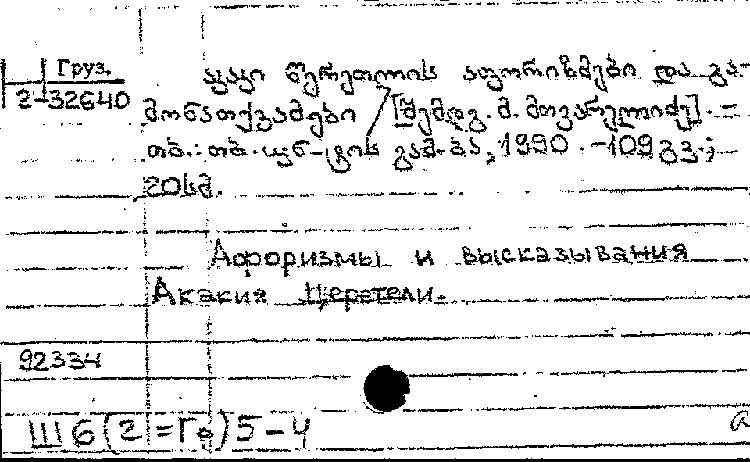 Груз.
2-32640
აკაკი წერეთლის აფორიზმები და გა-
მონათქვამები / [შემდგ. მ. მთვარელიძე]. –
თბ.: თბ. უნ-ტის გამ-ბა, 1990. – 109 გვ.;
20 სმ.
Афоризмы и высказывания
Акакия Церетели.
92334
Ш6(2=Гр)5-4
a